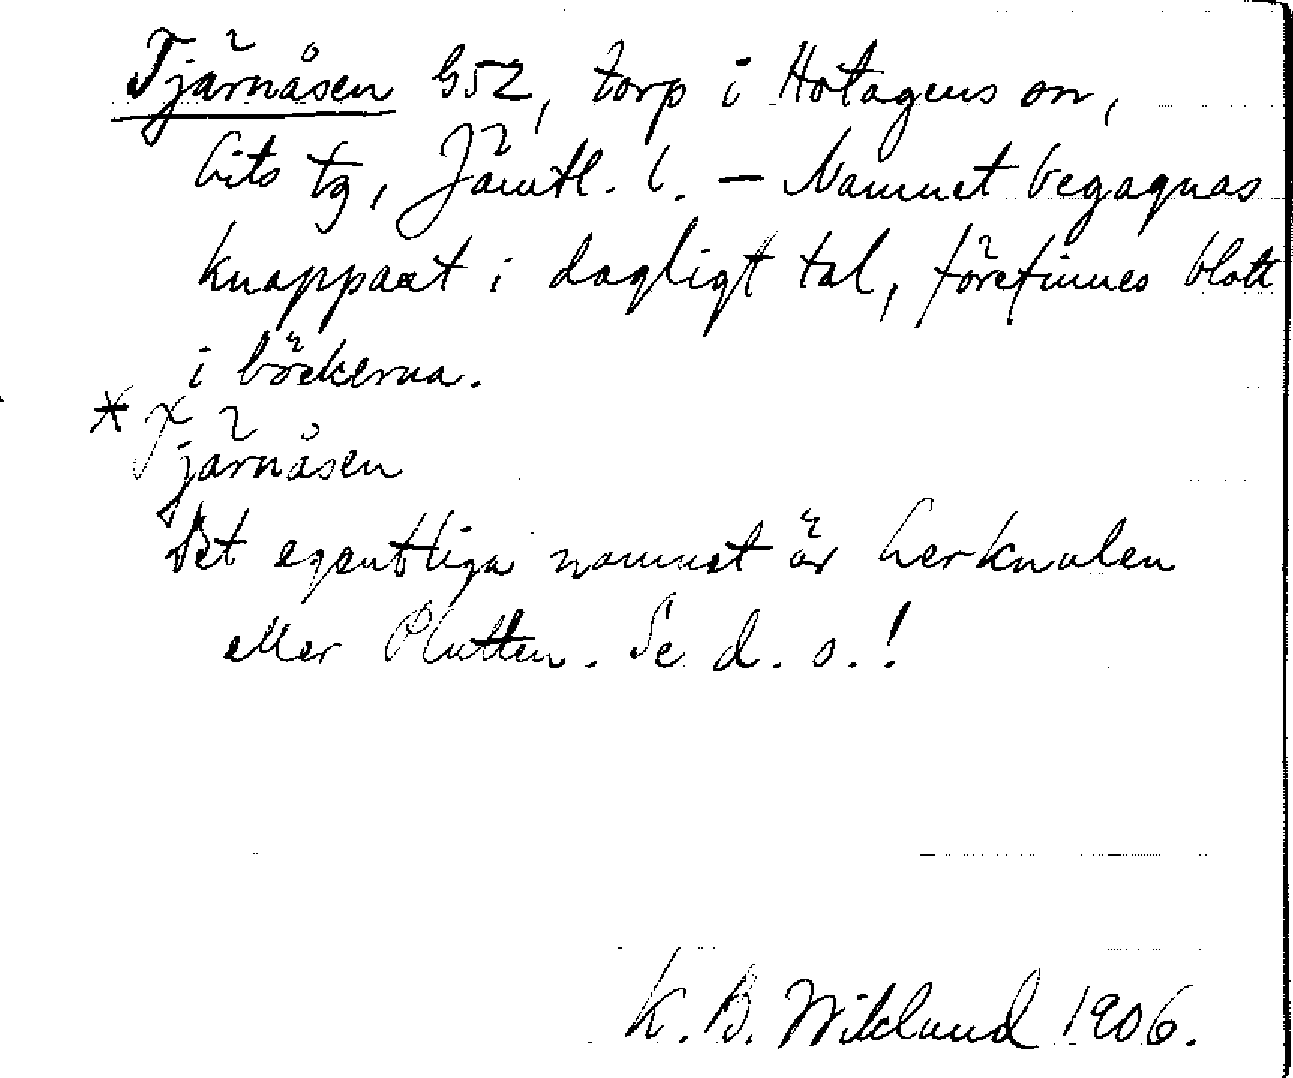 Tjärnåsen G5Z, torp i Hotagens sn,
Lits tg, Jämtl. l. – Namnet begagnas
knappast i dagligt tal, förefinnes blott
i böckerna.
* Tjärnåsen
Det egentliga namnet är Lerknulen
eller Plutten. Se d. o.!
K. B. Wiklund 1906.